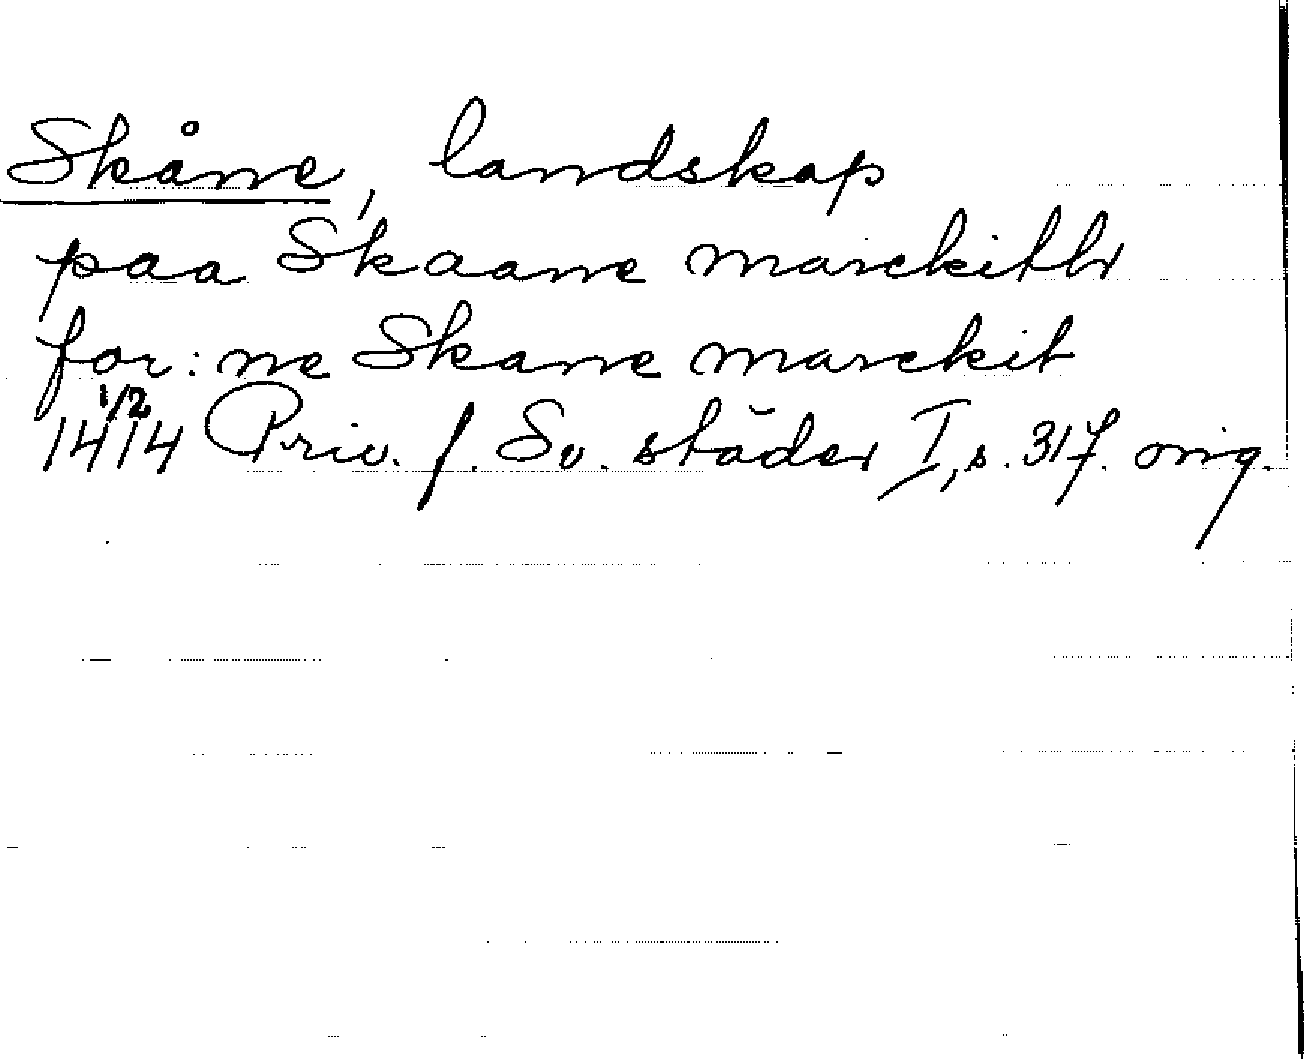 Skåne, landskap
paa Skaane marckitthr
for: ne Skane marckit
14 1/2 14 Priv. f. Sv. städer I, s. 317. orig.